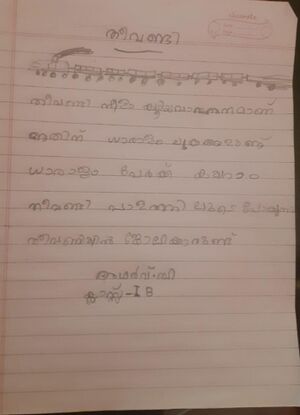 തീവണ്ടി
തീവണ്ടി നീളം കൂടിയവാഹനമാണ്
അതിന് ധാരാളം ചക്രങ്ങളുണ്ട്
ധാരാളം പേർക്ക് കയറാം
തീവണ്ടി പാളത്തി ലൂടെ പോവുന്നു
തീവണ്ടിയിൽ ജോലിക്കാരുണ്ട്
അഥർവ്.ഡി
ക്ലാസ്സ് - I B